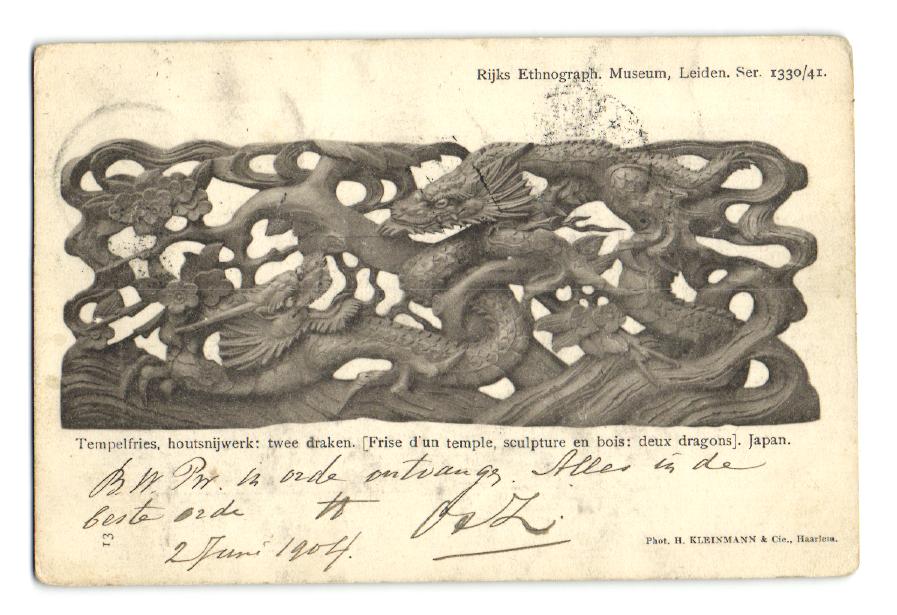 Rijks Ethnograph. Museum, Leiden. Ser. 1330/41.
Tempelfries, houtsnijwerk: twee draken. [Frise d'un temple, sculpture en bois: deux dragons]. Japan.
B.W. Pr. in orde ontvangen. Alles in de
beste orde
2 Juni 1904.
13
Phot. H. KLEINMANN & Cie., Haarlem.